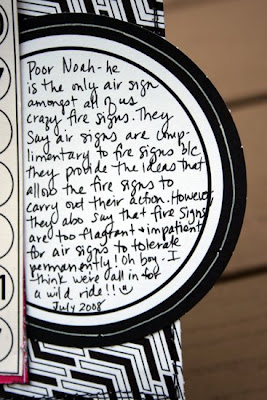 Poor Noah - he
is the only air sign
amongst all of us
crazy fire signs. They
say air signs are comp-
limentary to fire signs b/c
they provide the ideas that
allow the fire signs to
carry out their action. However,
they also say that fire signs
are too flagrant & impatient
for air signs to tolerate
permanently! Oh boy - I
think we're all in for
a wild ride!!
July 2008